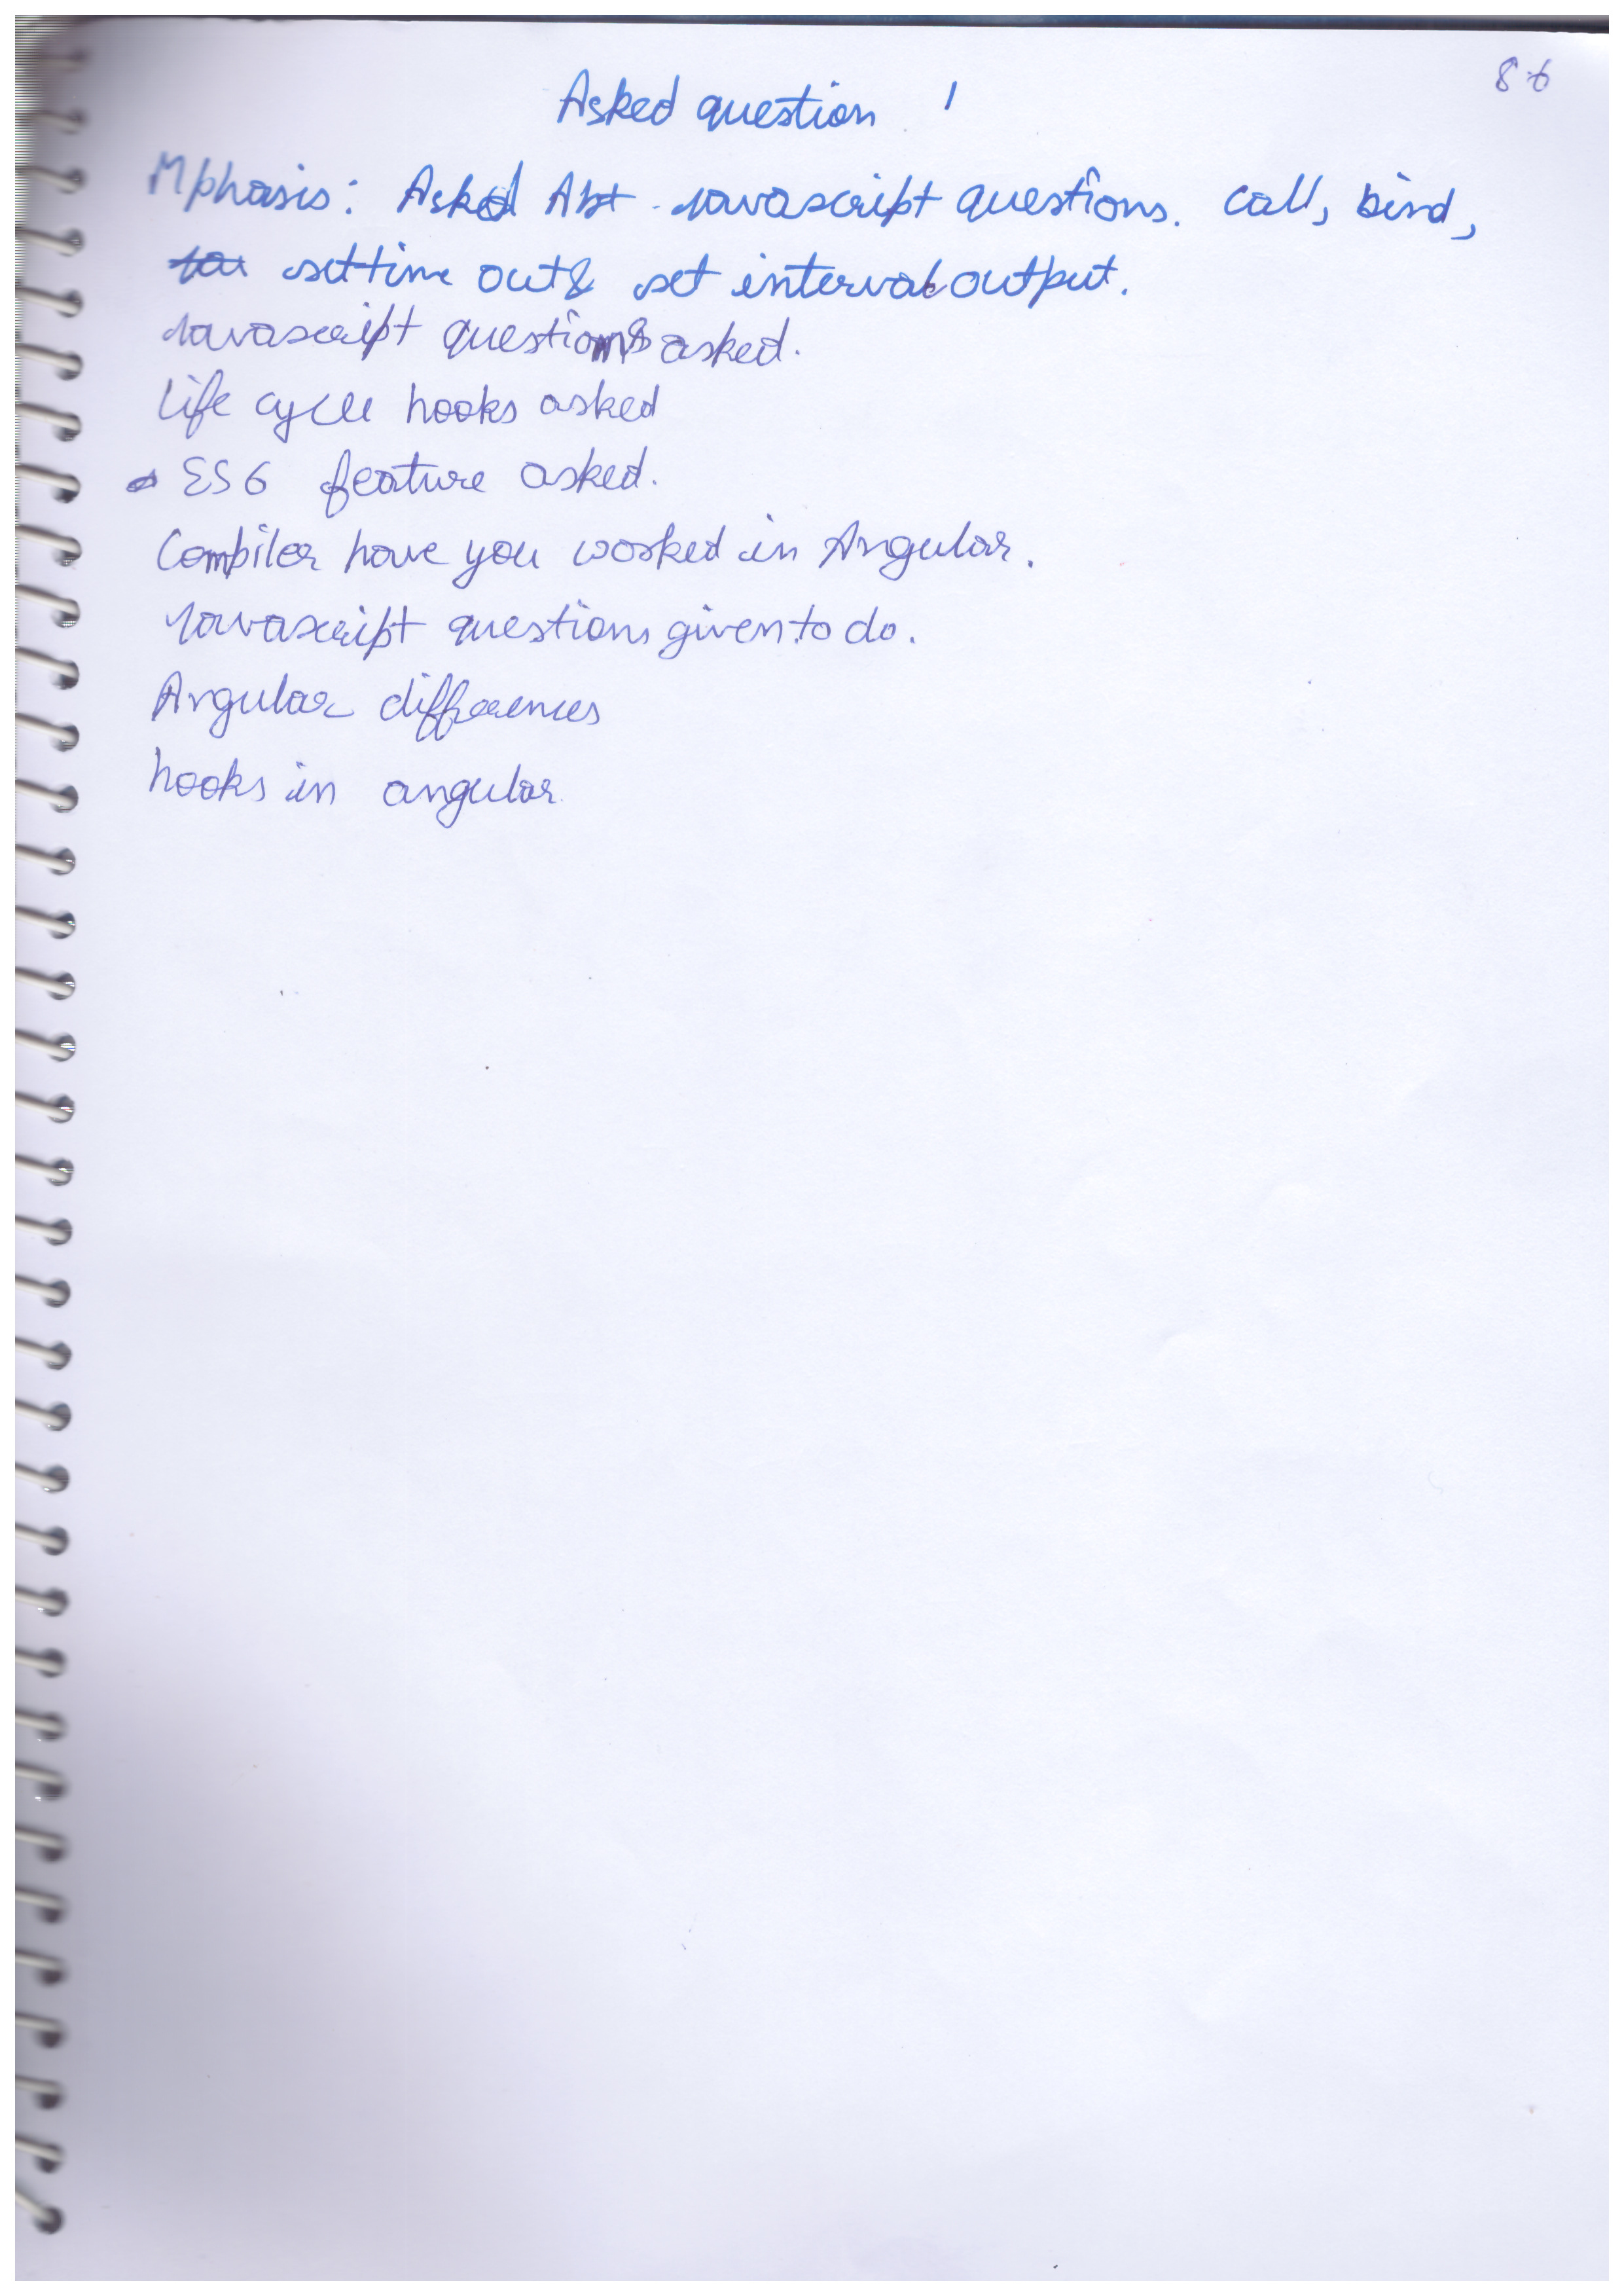 86
Asked question 1
Mphasis: Asked Abt Javascript questions. call, bind,
settime out & set interval output.
Javascript questions asked.
Life cycle hooks asked
ES6 feature asked.
Compiler have you worked in Angular.
Javascript questions given to do.
Angular differences
hooks in angular.